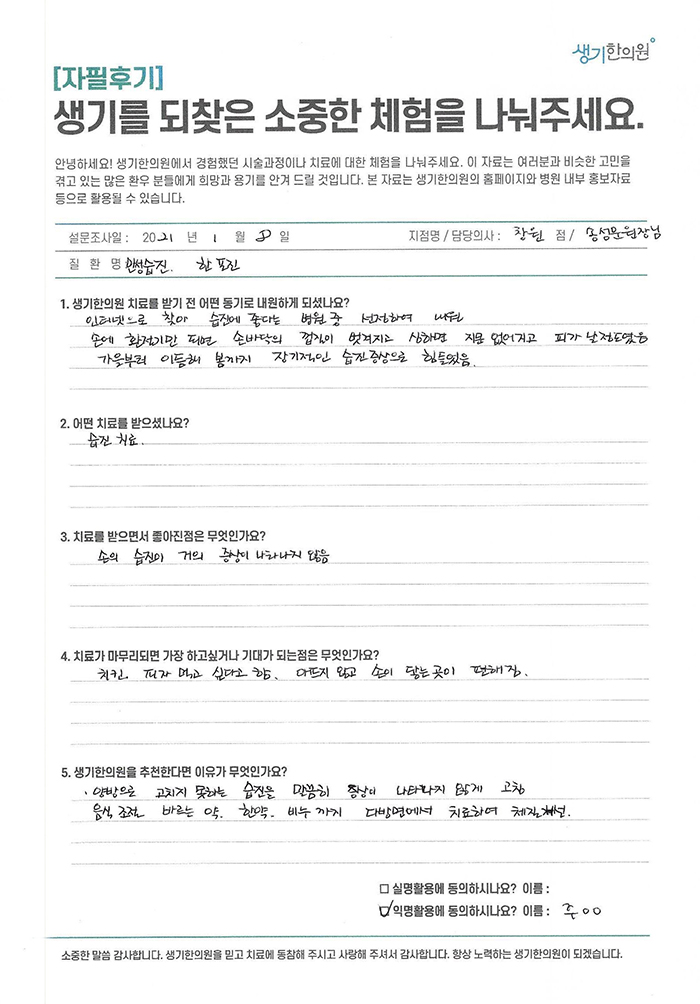 생기한의원
[자필후기]
생기를 되찾은 소중한 체험을 나눠주세요.
안녕하세요! 생기한의원에서 경험했던 시술과정이나 치료에 대한 체험을 나눠주세요. 이 자료는 여러분과 비슷한 고민을
겪고 있는 많은 환우 분들에게 희망과 용기를 안겨 드릴 것입니다. 본 자료는 생기한의원의 홈페이지와 병원 내부 홍보자료
등으로 활용될 수 있습니다.
설문조사일 : 2021 년 1 월 8 일 지점명 / 담당의사 : 창원 점 / 송성문원장님
질 환 명 만성습진. 한포진
1. 생기한의원 치료를 받기 전 어떤 동기로 내원하게 되셨나요?
인터넷으로 찾아 습진에 좋다는 병원 중 선정하여 내원
손에 환절기만 되면 손바닥의 껍질이 벗겨지고 심하면 지문 없어지고 피가 날정도였음
가을부터 이듬해 봄까지 장기적인 습진증상으로 힘들었음.
2. 어떤 치료를 받으셨나요?
습진 치료.
3. 치료를 받으면서 좋아진점은 무엇인가요?
손의 습진이 거의 증상이 나타나지 않음
4. 치료가 마무리되면 가장 하고싶거나 기대가 되는점은 무엇인가요?
치킨. 피자 먹고 싶다고 함. 아프지 않고 손이 닿는곳이 편해짐.
5. 생기한의원을 추천한다면 이유가 무엇인가요?
· 양방으로 고치지 못하는 습진을 말끔히 증상이 나타나지 않게 고침
음식 조절 바르는 약. 한약. 비누 까지 다방면에서 치료하여 체질개선.
□ 실명활용에 동의하시나요? 이름 :
☑ 익명활용에 동의하시나요? 이름 : 주○○
소중한 말씀 감사합니다. 생기한의원을 믿고 치료에 동참해 주시고 사랑해 주셔서 감사합니다. 항상 노력하는 생기한의원이 되겠습니다.